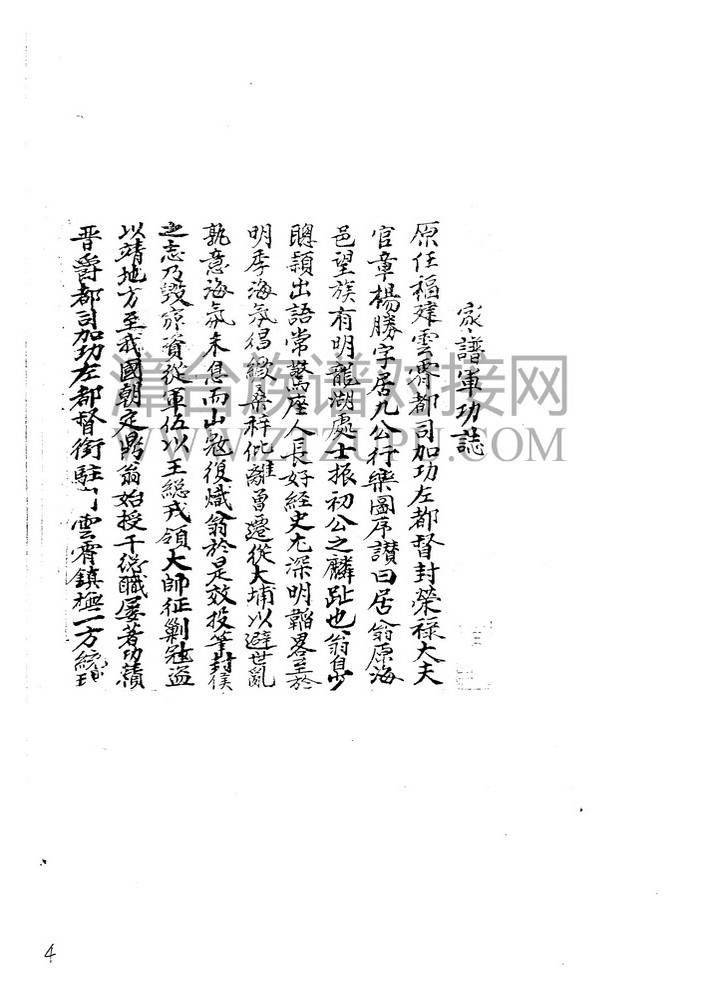 家譜軍功誌
原任福建雲霄都司加功左都督封榮祿大夫
官章楊勝字居九公行樂圖序讃曰居翁原海
邑望族有明龍湖處士振初公之麟趾也翁自少
聰頴出語常驚座人長好経史尤深明韜畧至於
明季海氛倡緻桑梓仳離曽遷從大埔以避世亂
孰意海氛未息而山冦復熾翁於是效投筆封侯
之志乃毀家資從軍伍以王総戎領大師征剿冦盗
以靖地方至我國朝定鼎翁始授千総職屡著功績
晋爵都司加功左都督銜駐雲霄鎮撫一方統理
漳台族谱对接网
WWW.ZTZUPU.COM
4